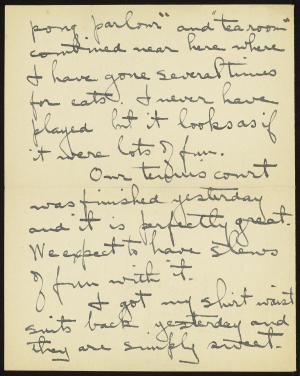 pong parlour" and "tea room"
combined near here where
I have gone several times
for eats. I never have
played but it looks as if
it were lots of fun.
Our tennis court
was finished yesterday
and it is perfectly great.
We expect to have slews
of fun with it.
I got my shirt waist
suits back yesterday and
they are simply sweet.